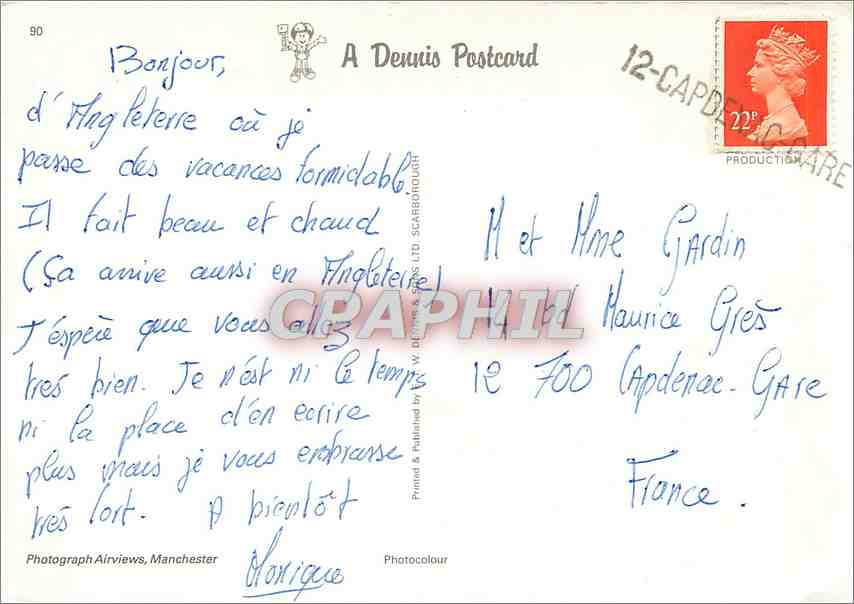 90
A Dennis Postcard
12-CAPDENAC-GARE
22P
PRODUCTION
Bonjour,
d'Angleterre où je
passe des vacances formidable.
Il fait beau et chaud
(Ça arrive aussi en Angleterre)
J'espère que vous allez
très bien. Je n'est ni le temps
ni la place d'en ecrire
plus mais je vous embrasse
très fort. A bientôt
Monique
M et Mme GARdin
bd Maurice Grès
12 700 CApdenac-GAre
France.
CPAPHIL
Printed & Published by W. DENNIS & SONS LTD. SCARBOROUGH
Photograph Airviews, Manchester
Photocolour